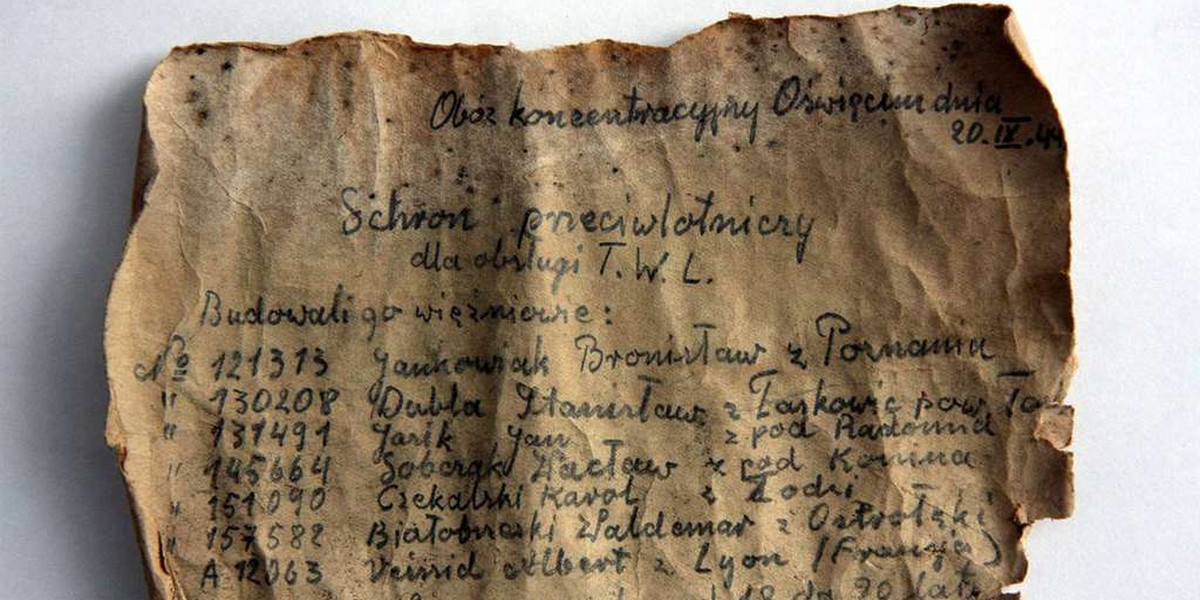 Obóz koncentracyjny Oświęcim dnia
20.IX.44
Schron przeciwlotniczy
dla obsługi T.W.L.
Budowali go więźniowie:
№ 121313 Jankowiak Bronisław z Poznania
" 130208 Dubla Stanisław z Łaskowic pow.
" 131491 Jasik Jan z pod Radomia
" 145664 Sobczak Wacław z pod Konina
" 151090 Czekalski Karol z Łodzi
" 157582 Białobrzeski Waldemar z Ostrołęki
A 12063 Veissid Albert z Lyon (Francja)
18 do 20 lat